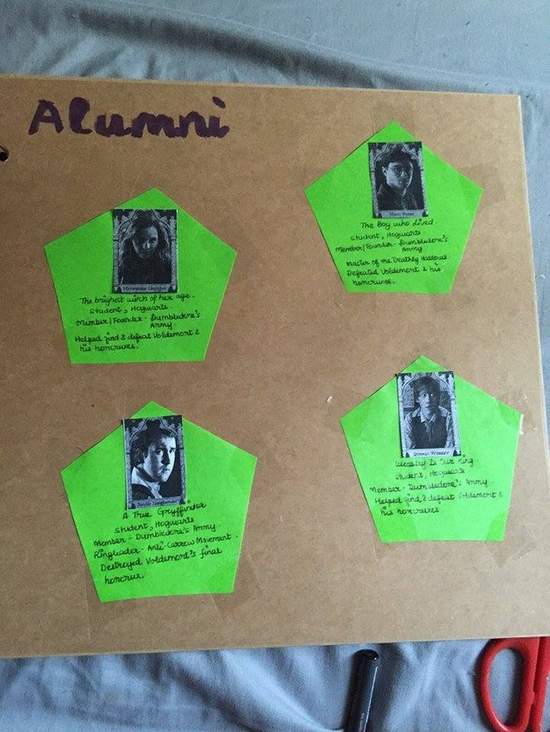 Alumni
Hermione Granger
The brightest witch of her age.
Student, Hogwarts
Member/Founder - Dumbledore's
Army
Helped find & defeat Voldemort &
his horcruxes.
Harry Potter
The Boy who Lived
Student, Hogwarts
Member/Founder - Dumbledore's
Army
Master of the Deathly Hallows
Defeated Voldemort & his
horcruxes.
Neville Longbottom
A True Gryffindor
Student, Hogwarts
Member - Dumbledore's Army
Ringleader - Anti-Carrow Movement.
Destroyed Voldemort's final
horcrux.
Ronald Weasley
Weasley Is Our King
Student, Hogwarts
Member - Dumbledore's Army
Helped find & defeat Voldemort &
his horcruxes